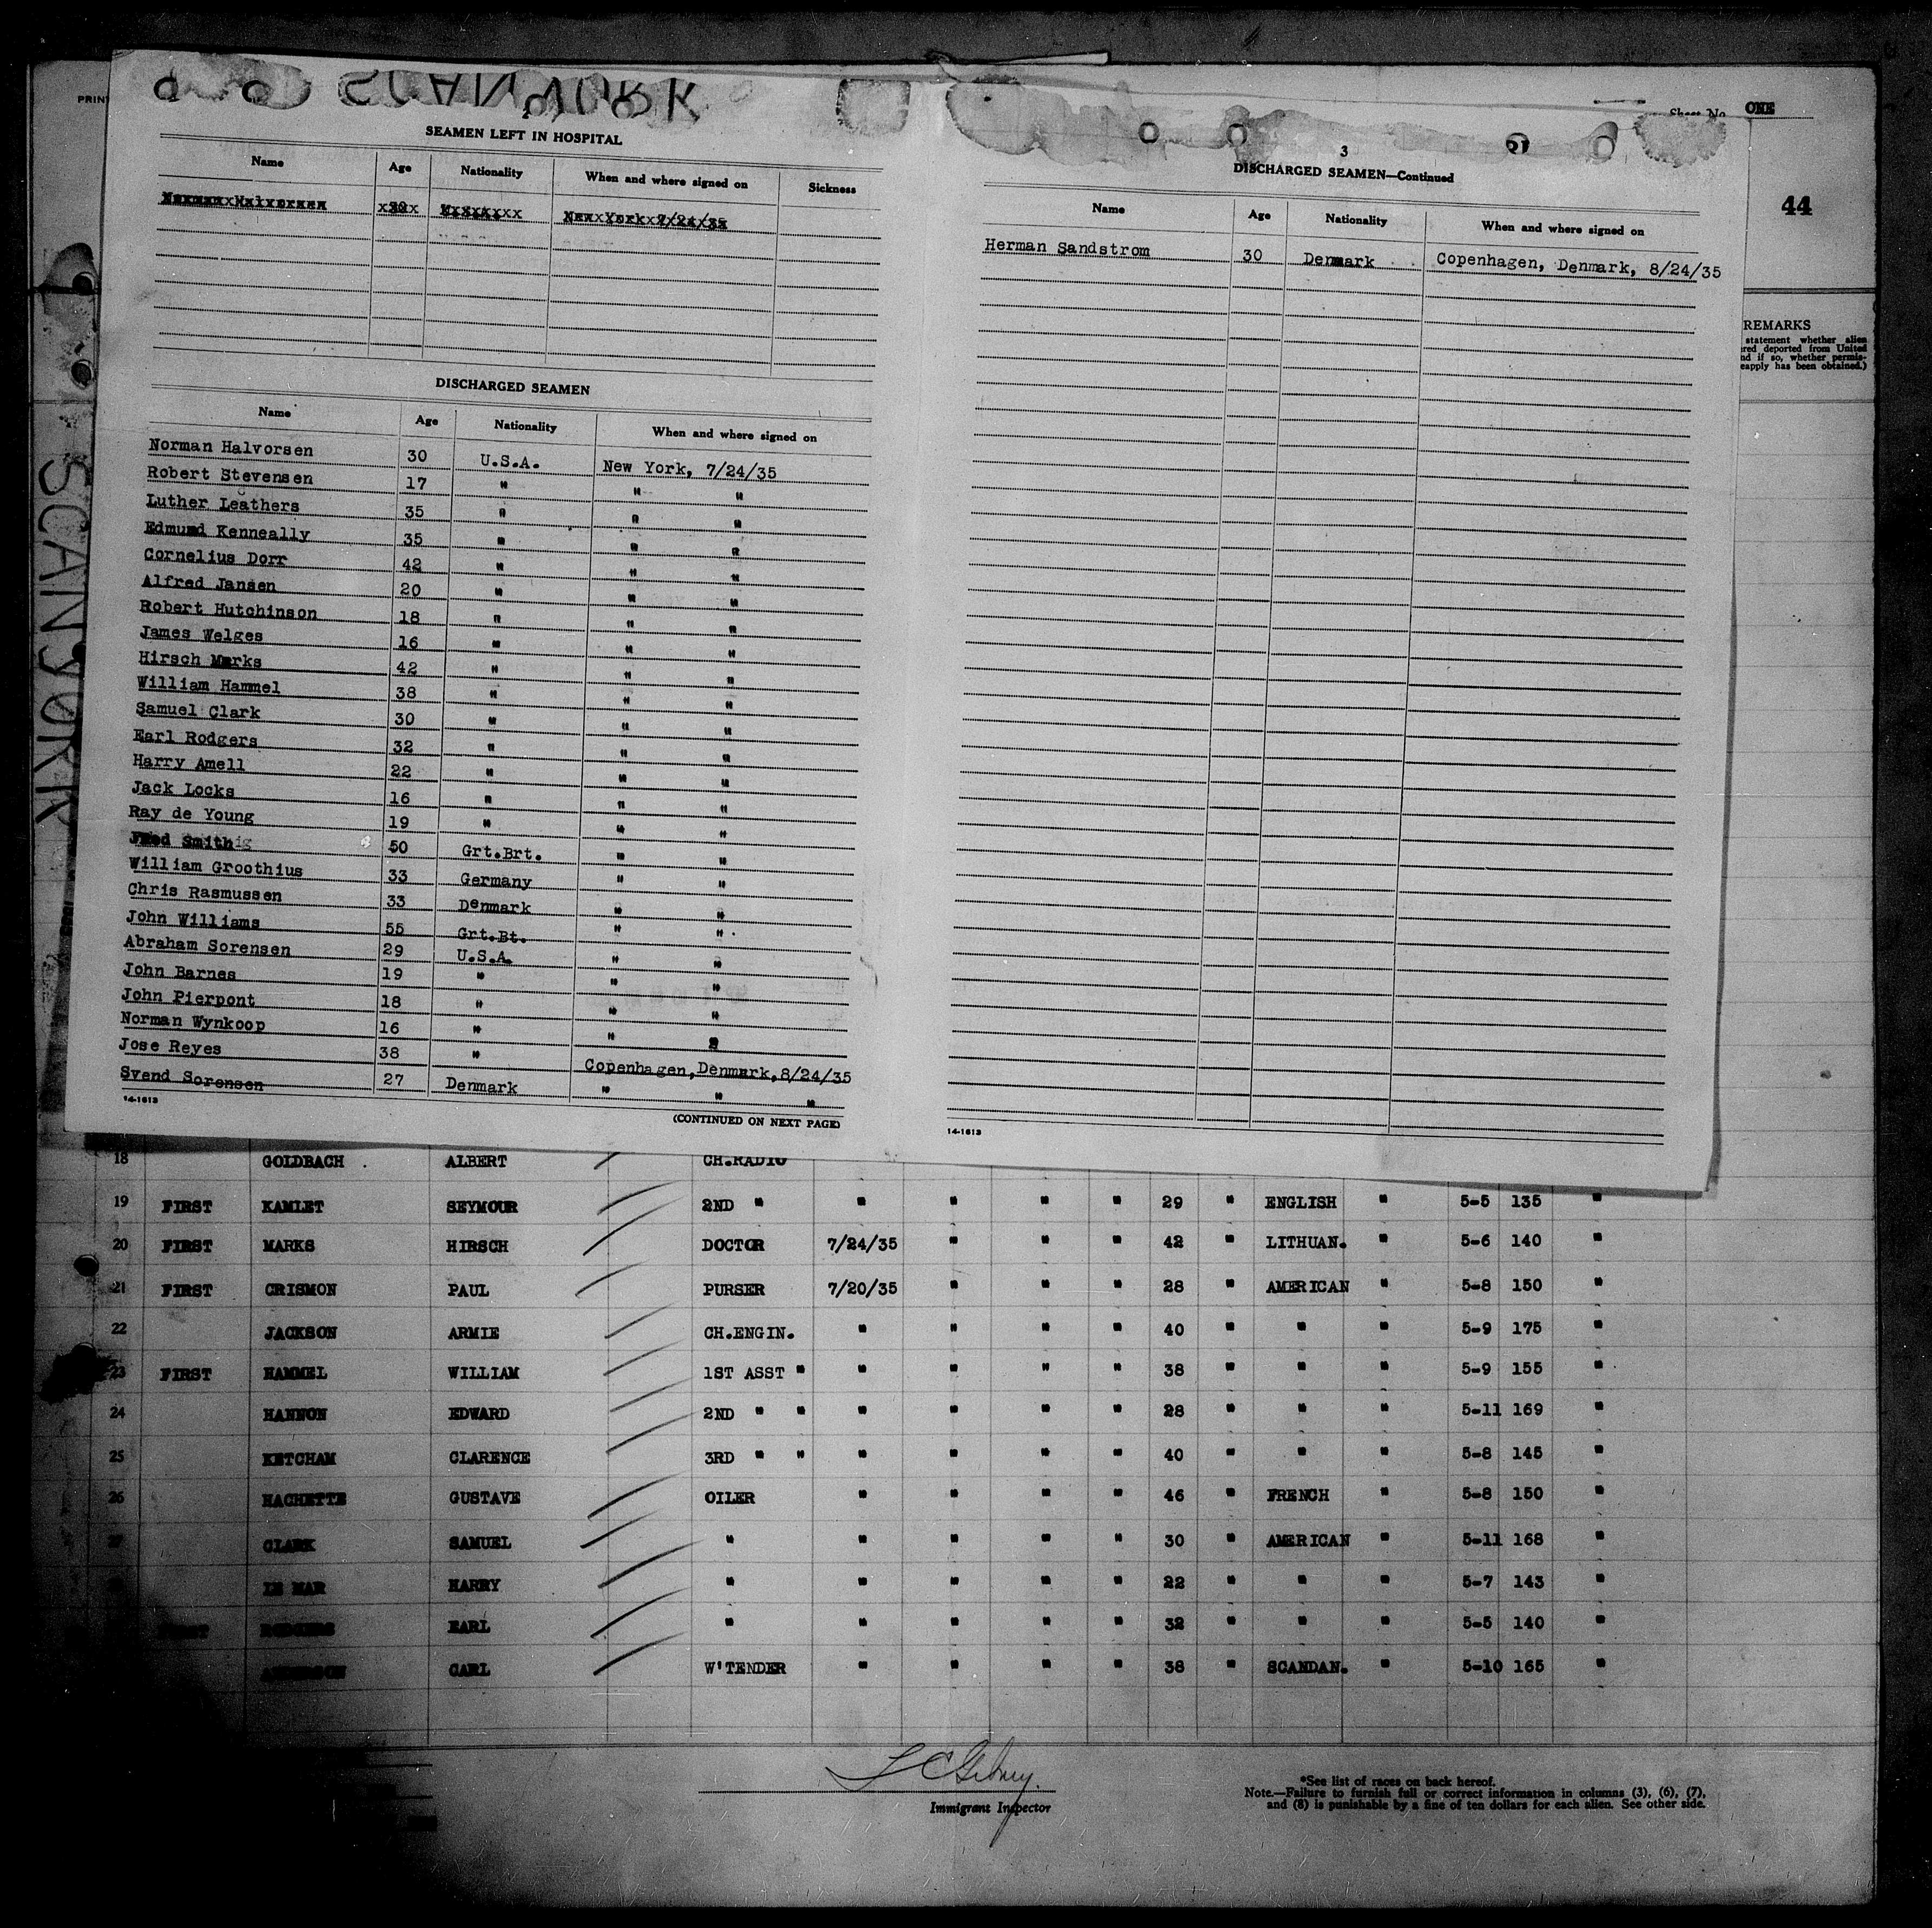 PRINT
Sheet No. ONE
44
SCANYORK
SCANYORK
SEAMEN LEFT IN HOSPITAL
Name Age Nationality When and where signed on Sickness
30 New York 7/24/35
DISCHARGED SEAMEN
Name Age Nationality When and where signed on
Norman Halvorsen 30 U.S.A. New York, 7/24/35
Robert Stevensen 17 " " "
Luther Leathers 35 " " "
Edmund Kenneally 35 " " "
Cornelius Dorr 42 " " "
Alfred Jansen 20 " " "
Robert Hutchinson 18 " " "
James Welges 16 " " "
Hirsch Marks 42 " " "
William Hammel 38 " " "
Samuel Clark 30 " " "
Earl Rodgers 32 " " "
Harry Amell 22 " " "
Jack Locks 16 " " "
Ray de Young 19 " " "
Fred Smith 50 Grt.Brt. " "
William Groothius 33 Germany " "
Chris Rasmussen 33 Denmark " "
John Williams 55 Grt.Bt. " "
Abraham Sorensen 29 U.S.A. " "
John Barnes 19 " " "
John Pierpont 18 " " "
Norman Wynkoop 16 " " "
Jose Reyes 38 " Copenhagen,Denmark,8/24/35
Svend Sorensen 27 Denmark " " "
14-1613
(CONTINUED ON NEXT PAGE)
3
DISCHARGED SEAMEN—Continued
Name Age Nationality When and where signed on
Herman Sandstrom 30 Denmark Copenhagen, Denmark, 8/24/35
14-1613
REMARKS
statement whether alien
red deported from United
nd if so, whether permis-
eapply has been obtained.)
18 GOLDBACH ALBERT CH.RADIO
19 FIRST KAMLET SEYMOUR 2ND " " " " " 29 " ENGLISH " 5-5 135 "
20 FIRST MARKS HIRSCH DOCTOR 7/24/35 " " " 42 " LITHUAN. " 5-6 140 "
21 FIRST CRISMON PAUL PURSER 7/20/35 " " " 28 " AMERICAN " 5-8 150 "
22 JACKSON ARMIE CH.ENGIN. " " " " 40 " " " 5-9 175 "
23 FIRST HAMMEL WILLIAM 1ST ASST " " " " " 38 " " " 5-9 155 "
24 HANNON EDWARD 2ND " " " " " " 28 " " " 5-11 169 "
25 KETCHAM CLARENCE 3RD " " " " " " 40 " " " 5-8 145 "
26 HACHETTE GUSTAVE OILER " " " " 46 " FRENCH " 5-8 150 "
27 CLARK SAMUEL " " " " " 30 " AMERICAN " 5-11 168 "
LE MAR HARRY " " " " " 22 " " " 5-7 143 "
FIRST RODGERS EARL " " " " " 32 " " " 5-5 140 "
ANDERSON CARL W'TENDER " " " " 38 " SCANDAN. " 5-10 165 "
Immigrant Inspector
*See list of races on back hereof.
Note.—Failure to furnish full or correct information in columns (3), (6), (7),
and (8) is punishable by a fine of ten dollars for each alien. See other side.